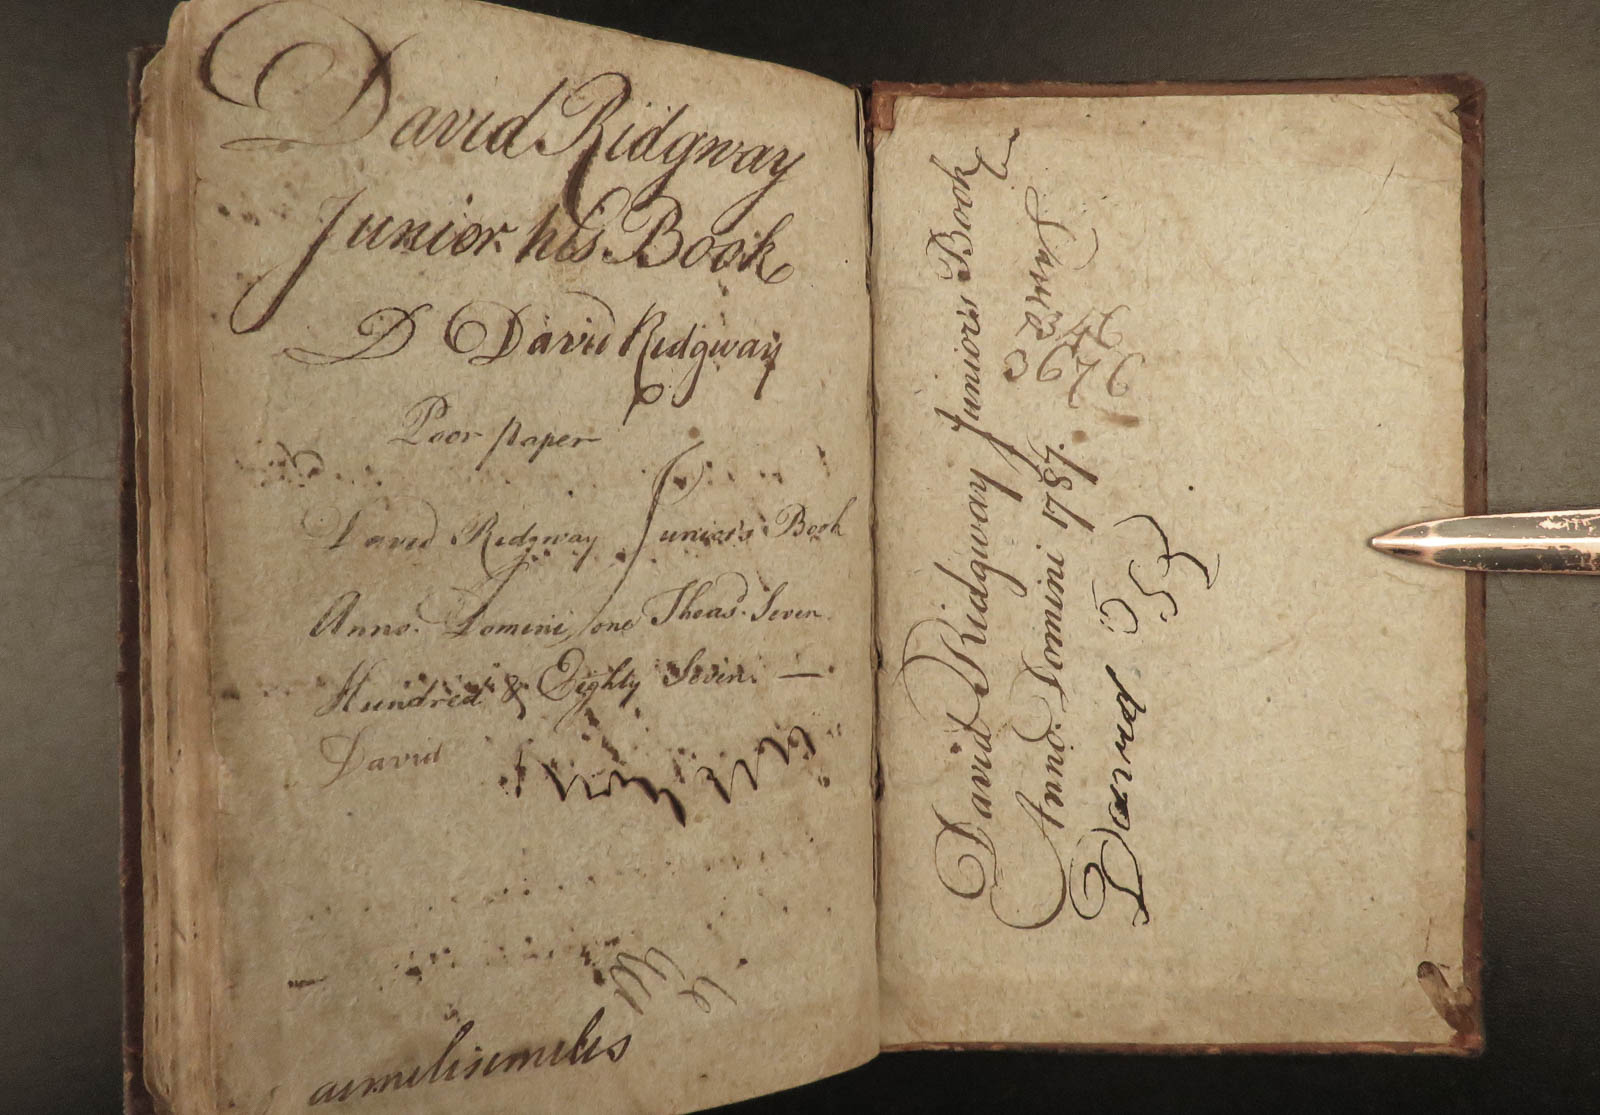 David Ridgway
Junior his Book
D David Ridgway
Poor paper
David Ridgway Junior's Book
Anno. Domini, one Thoasd. Seven
Hundred & Eighty Seven. —
David
David Ridgway Juniors Book
Anno. Domini 1787.
David
David